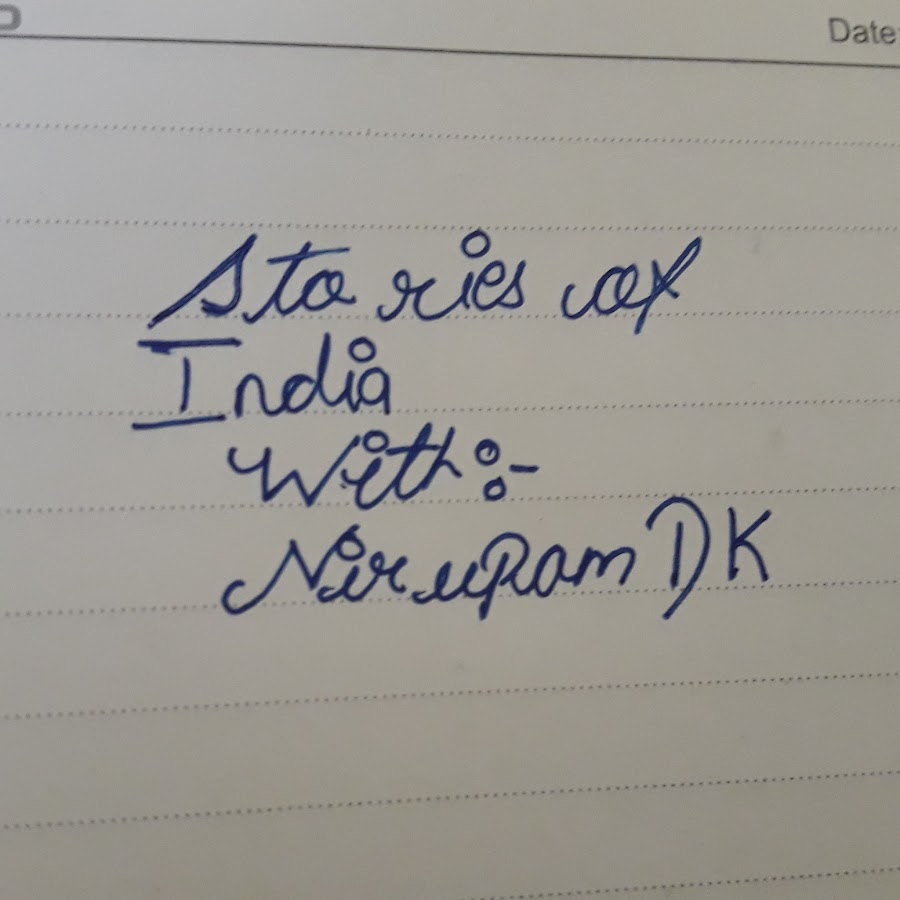 Date:
Stories of
India
With:-
Nirupam DK